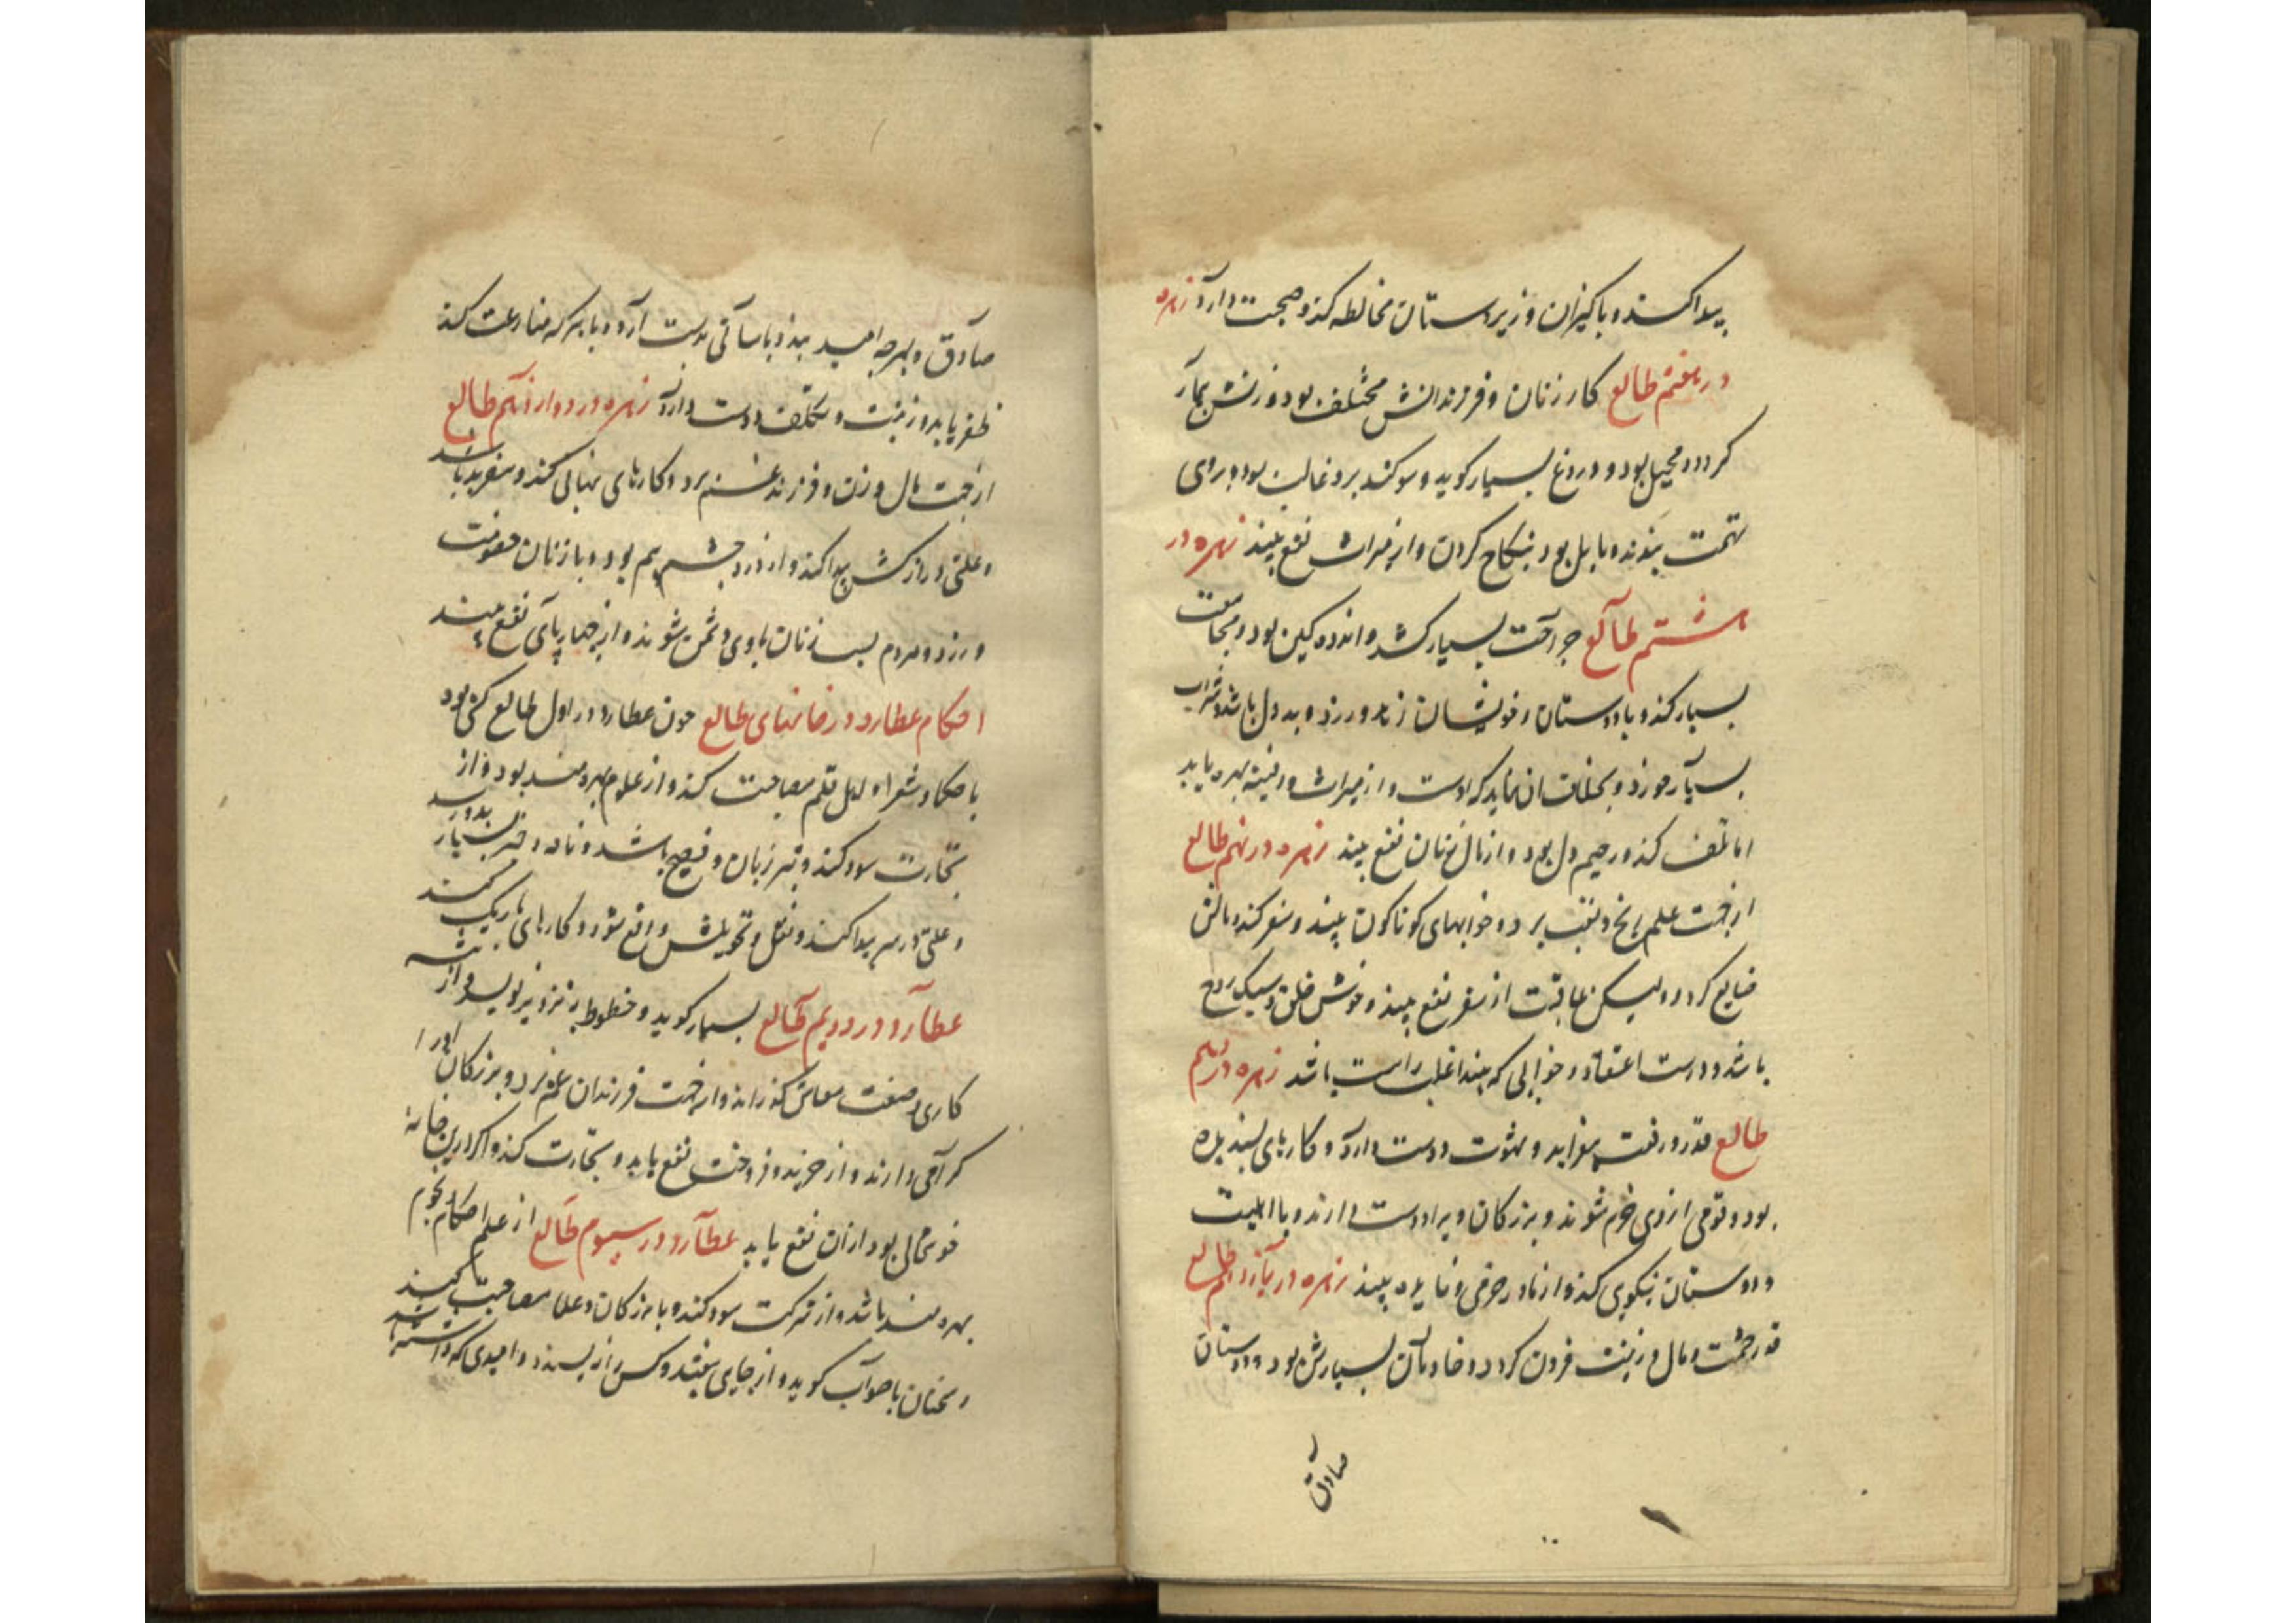 پیدا کند و با کنیزان و زیردستان مخالطه کند و صحبت دارد زهره
در هفتم طالع کار زنان و فرزندانش مختلف بود و زنش بیمار
کردد و محیل بود و دروغ بسیار کوید و سوکند برو غالب بود و بروی
تهمت بندند و مایل بود بنکاح کردن و از میراث نفع بیند زهره در
هشتم طالع جراحت بسیار کشد و اندوه کین بود و مجامعت
بسیار کند و با دوستان و خویشان زنا ورزد و بد دل باشد و شراب
بسیار خورد و که اوست و از میراث و دفینه بهره یابد
اما تلف کند و رحیم دل بود و از مال زنان نفع بیند زهره در نهم طالع
از جهت علم رنج و تعب برد و خوابهای کوناکون بیند و سفر کند و مالش
ضایع کردد و لیکن عاقبت از سفر نفع بیند و خوش خلق و سبک روح
باشد و درست اعتقاد و خوابی که بیند اغلب راست باشد زهره در دهم
طالع قدر و رفعت بیفزاید و شهوت دوست دارد و کارهای پسندیده
بود و قومی از وی خرم شوند و بزرکان ویرا دوست دارند و با اهلیت
و دوستان نیکویی کند و از مادر و فایده بیند زهره در یازدهم طالع
قدر حشمت و مال و زینت فزون کردد و خادمان بسیارش بود و دوستان
صادق
صادق و بهرچه امید بندد باسانی بدست آرد و با هر که منازعت کند
ظفر یابد و زینت و تکلف دوست دارد زهره در دوازدهم طالع
از جهت مال و زن و فرزند غم برد و کارهای نهانی کند و سفر بد باشد
و علتی دراز کش پیدا کند و از درد چشم بیم بود و با زنان خصومت
ورزد و مردم بسبب زنان با وی دشمن شوند و از چهارپای نفع بیند
احکام عطارد در خانهای طالع چون عطارد در اول طالع کسی بود
با حکما و شعرا و اهل قلم مصاحبت کند و از علوم بهره مند بود و از
تجارت سود کند و تیز زبان و فصیح باشد و نامه و خبر بسیار بدو رسد
و علتی در سر پیدا کند و نقل و تحویلش واقع شود و کارهای باریک کند
عطارد در دویم طالع بسیار کوید و خطوط بتزویر نویسد و از پیشه
کاری و صنعت معاش کذراند و از جهت فرزندان غم برد و بزرکان او را
کرامی دارند و از خرید و فروخت نفع یابد و تجارت کند و اکر درین خانه
خوشحال بود از آن نفع یابد عطارد در سیوم طالع از علم احکام نجوم
بهره مند باشد و از شرکت سود کند و با بزرکان و علما مصاحبت کند
و سخنان با صواب کوید و از جای بیفتد و امیدی که داشته باشد